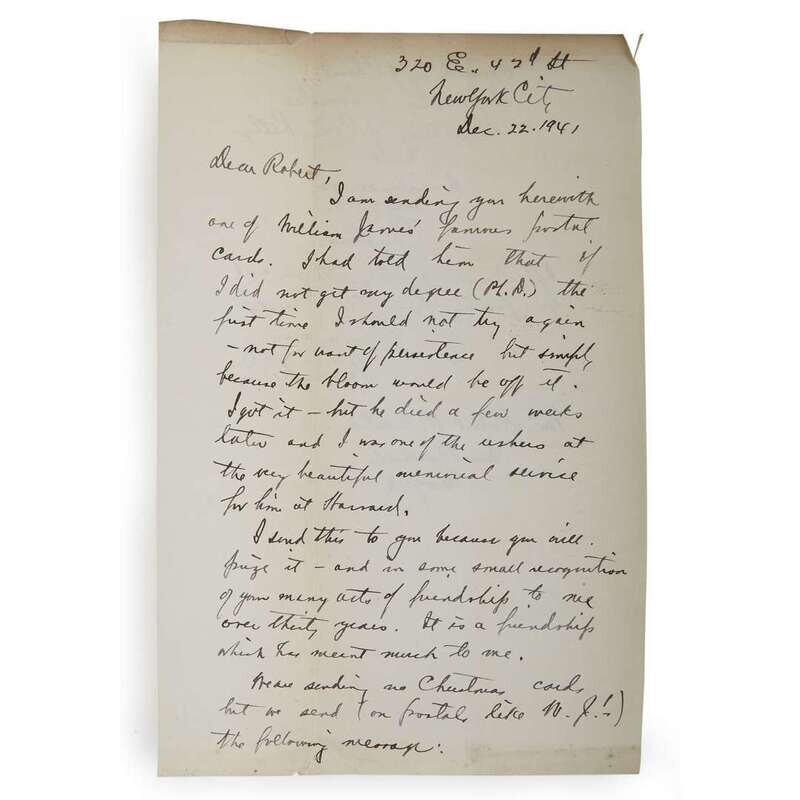 320 E. 42d St
New York City
Dec. 22. 1941
Dear Robert,
I am sending you herewith
one of William James' famous postal
cards. I had told him that if
I did not get my degree (Ph.D.) the
first time I should not try again
– not for want of persistence but simply
because the bloom would be off it.
I got it – but he died a few weeks
later and I was one of the ushers at
the very beautiful memorial service
for him at Harvard.
I send this to you because you will
prize it – and in some small recognition
of your many acts of friendship to me
over thirty years. It is a friendship
which has meant much to me.
We are sending no Christmas cards
but we send (on postals like W. J.!)
the following message: